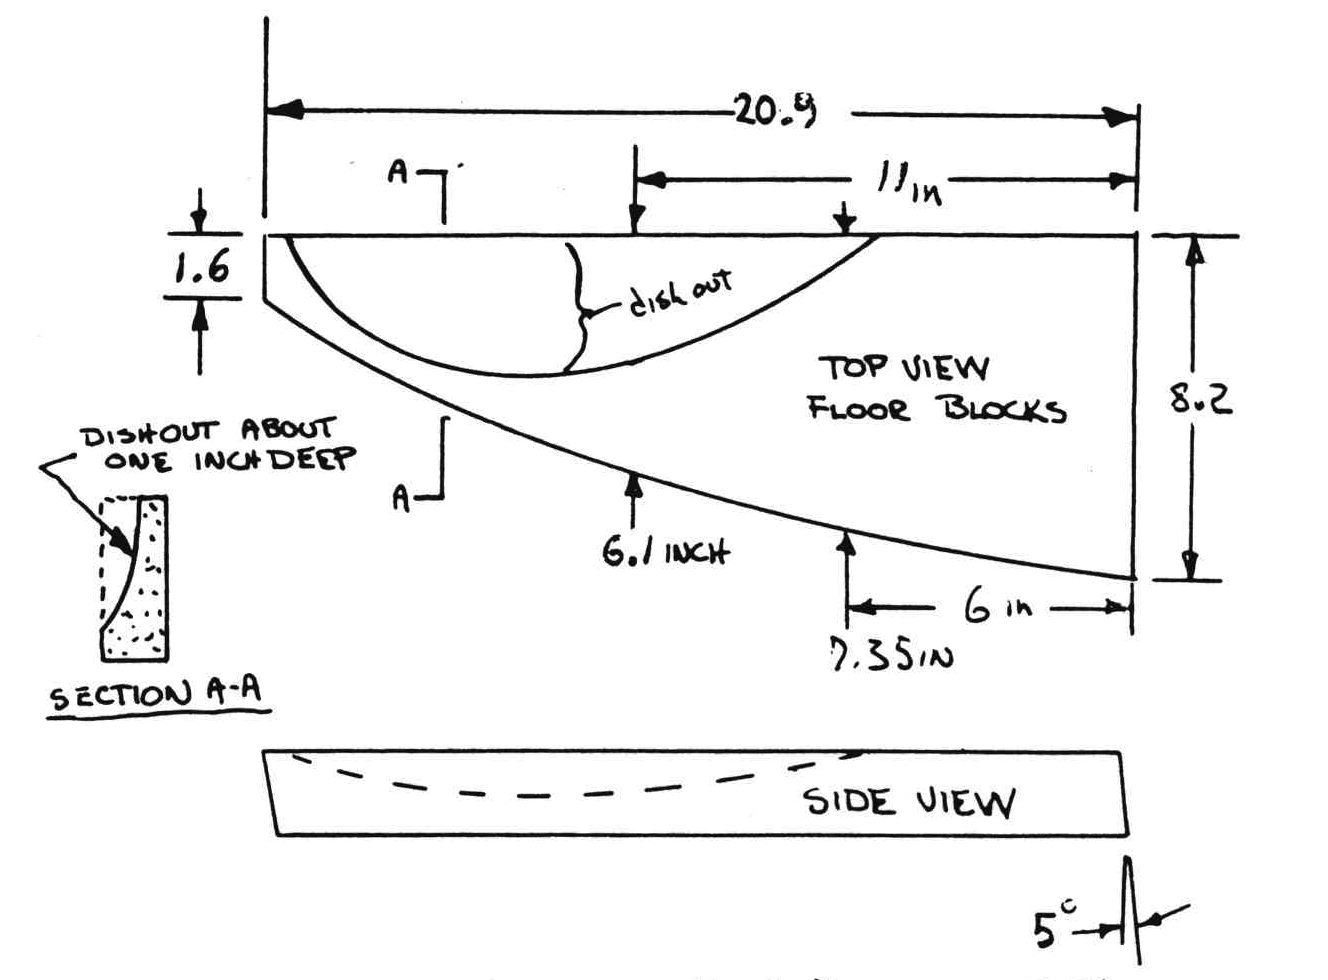 20.9
A
11in
1.6
dish out
TOP VIEW
FLOOR BLOCKS
8.2
DISHOUT ABOUT
ONE INCH DEEP
A
6.1 INCH
6 in
7.35 IN
SECTION A-A
SIDE VIEW
5°